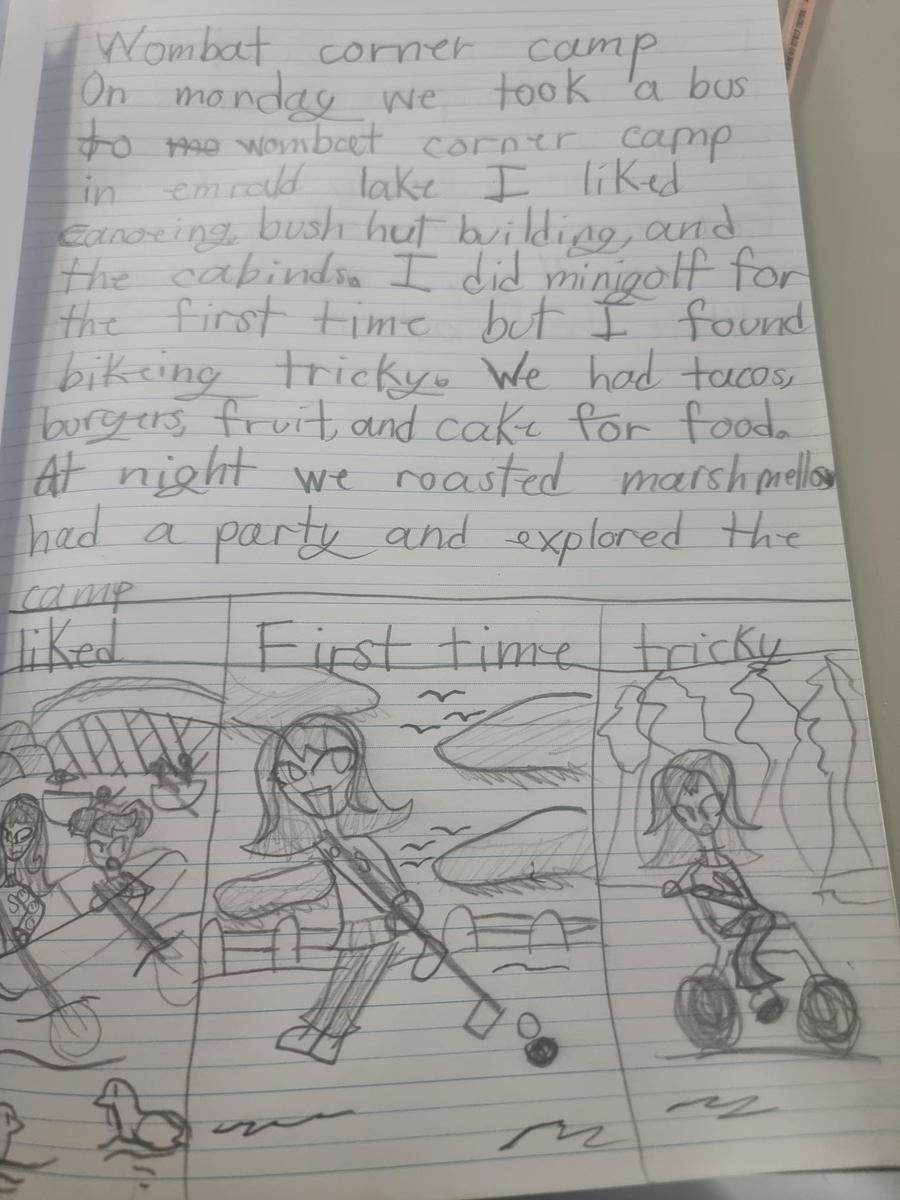 Wombat corner camp
On monday we took a bus
to me wombat corner camp
in emrald lake I liked
canoeing, bush hut building, and
the cabinds. I did minigolf for
the first time but I found
bikeing tricky. We had tacos,
burgers, fruit, and cake for food.
At night we roasted marshmello
had a party and explored the
camp
liked First time tricky